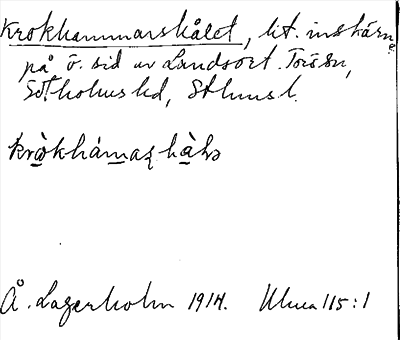 Krokhammarshålet, lit. inskärn.
på ö. sid av Landsort. Torö sn,
Sotholms hd, Sthms l.
kròkhámaʂ hàlə
Å. Lagerholm 1914. Ulma 115:1